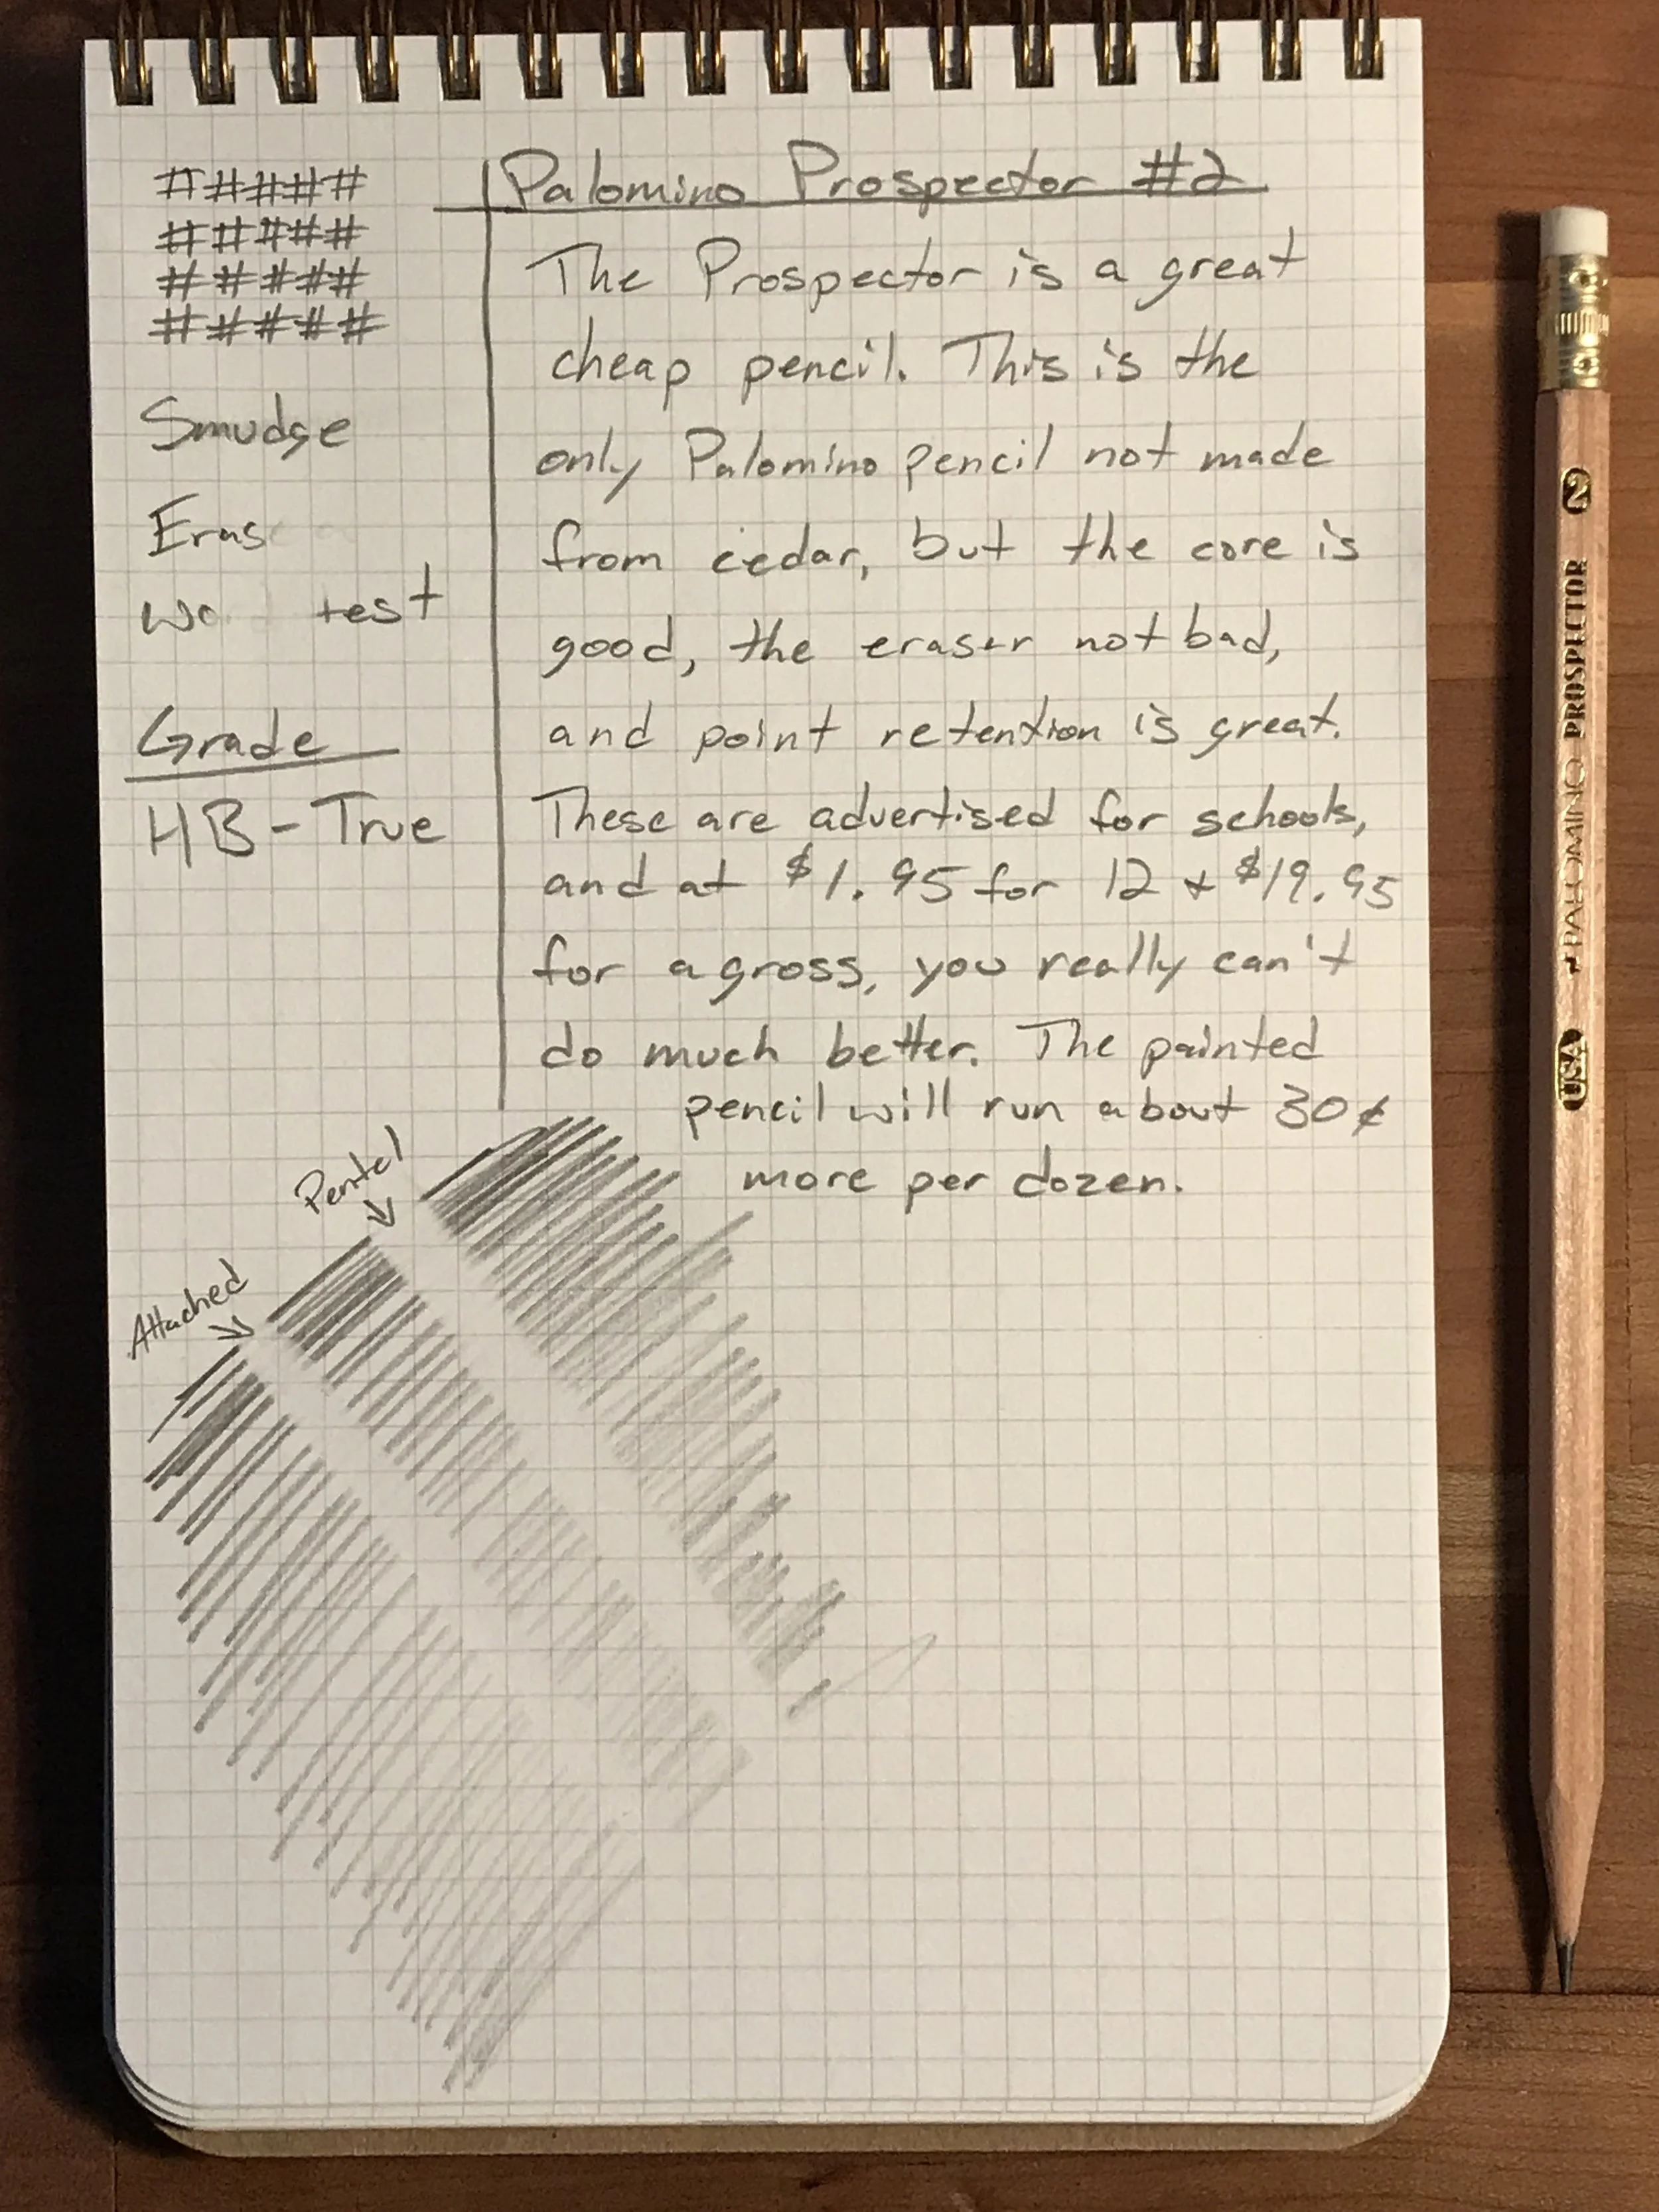 # # # # #
# # # # #
# # # # #
# # # # #
Smudge
Eras
test
Grade
HB - True
Palomino Prospector #2
The Prospector is a great
cheap pencil. This is the
only Palomino pencil not made
from cedar, but the core is
good, the eraser not bad,
and point retention is great.
These are advertised for schools,
and at $1.95 for 12 + $19.95
for a gross, you really can't
do much better. The painted
pencil will run about 30¢
more per dozen.
Pentel
Attached
USA PALOMINO PROSPECTOR 2